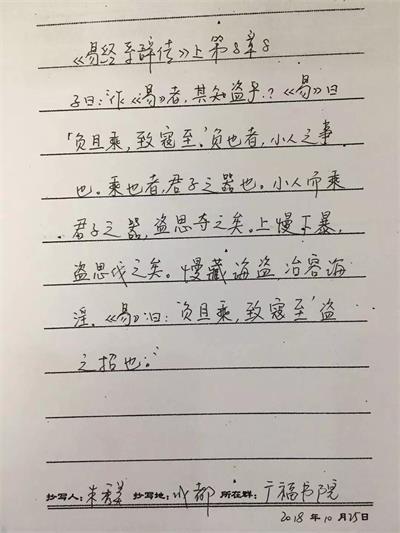 《易经系辞传》上第8章8
子曰：“作《易》者，其知盗乎？《易》曰
‘负且乘，致寇至。’负也者，小人之事
也。乘也者，君子之器也。小人而乘
君子之器，盗思夺之矣。上慢下暴，
盗思伐之矣。慢藏诲盗，冶容诲
淫。《易》曰：‘负且乘，致寇至’盗
之招也。”
抄写人：朱 抄写地：成都 所在群：广福书院
2018年10月25日